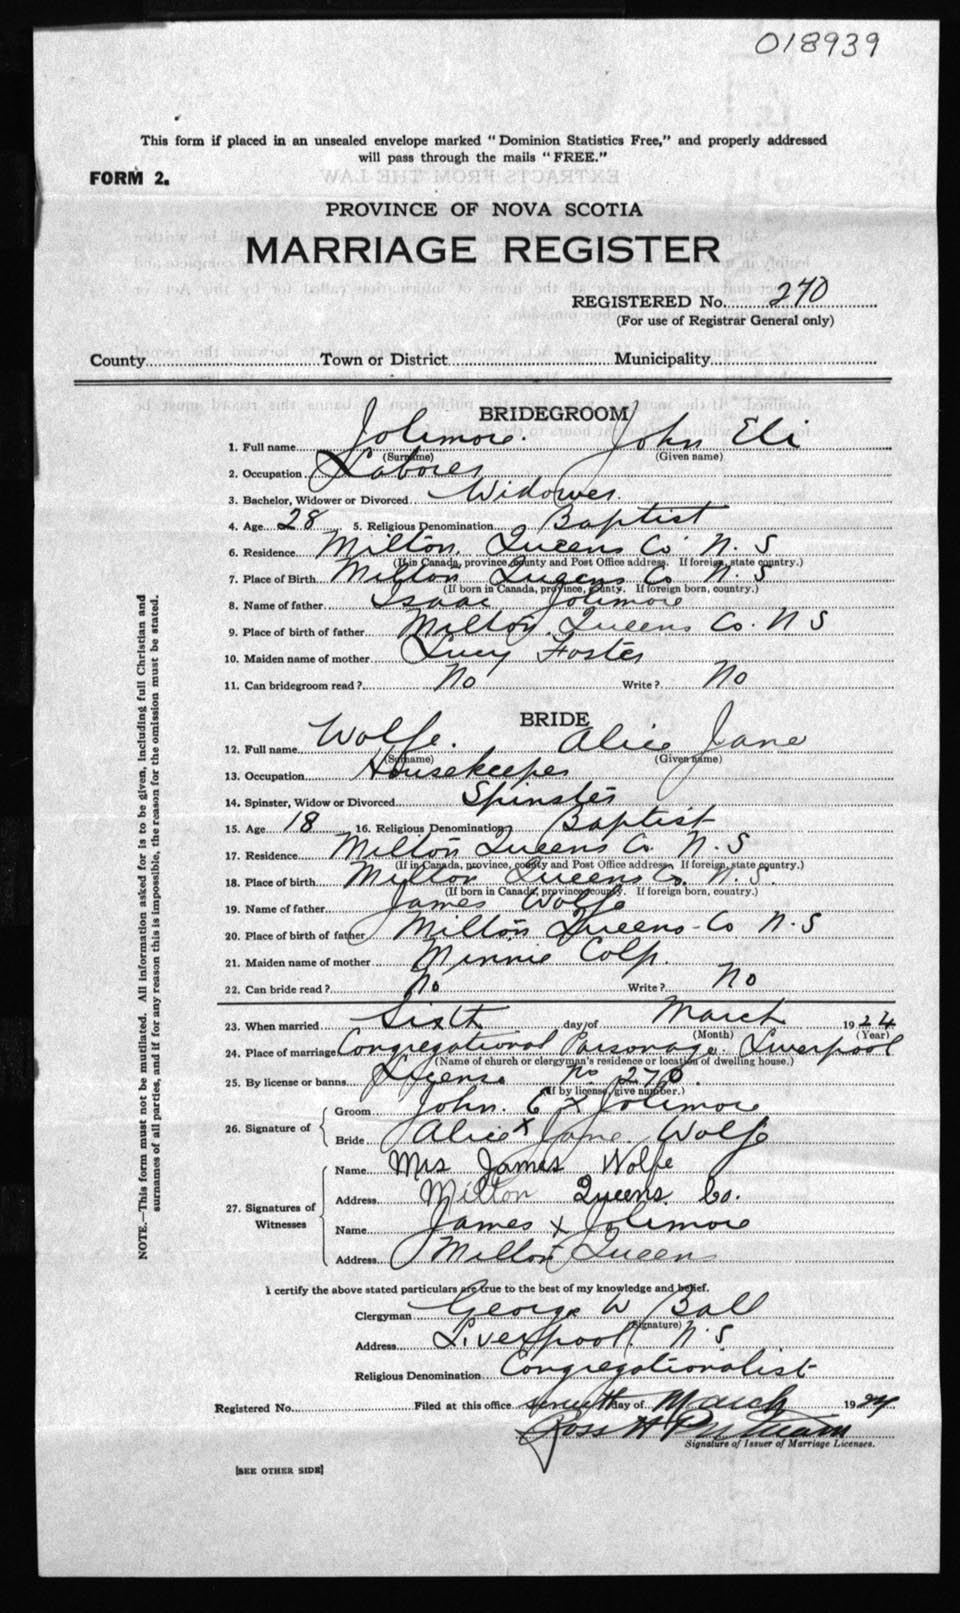 018939
This form if placed in an unsealed envelope marked "Dominion Statistics Free," and properly addressed
will pass through the mails "FREE."
FORM 2.
PROVINCE OF NOVA SCOTIA
MARRIAGE REGISTER
REGISTERED No. 270
(For use of Registrar General only)
County Town or District Municipality
BRIDEGROOM
1. Full name Jolimore. John Eli
(Surname) (Given name)
2. Occupation Laborer
3. Bachelor, Widower or Divorced Widower.
4. Age 28 5. Religious Denomination Baptist
6. Residence Milton, Queens Co N. S
(If in Canada, province, county and Post Office address. If foreign, state country.)
7. Place of Birth Milton Queens Co N. S
(If born in Canada, province, county. If foreign born, country.)
8. Name of father Isaac Jolimore
9. Place of birth of father Milton. Queens Co. N S
10. Maiden name of mother Lucy Foster
11. Can bridegroom read? No Write? No
BRIDE
12. Full name Wolfe. Alice Jane
(Surname) (Given name)
13. Occupation Housekeeper
14. Spinster, Widow or Divorced Spinster
15. Age 18 16. Religious Denomination Baptist
17. Residence Milton Queens Co. N. S
(If in Canada, province, county and Post Office address. If foreign, state country.)
18. Place of birth Milton Queens Co. N. S.
(If born in Canada, province, county. If foreign born, country.)
19. Name of father James Wolfe
20. Place of birth of father Milton Queens - Co N. S
21. Maiden name of mother Minnie Colp.
22. Can bride read? No Write? No
23. When married Sixth day of March 1924
(Month) (Year)
24. Place of marriage Congregational Parsonage Liverpool
(Name of church or clergyman's residence or location of dwelling house.)
25. By license or banns License No 270.
(If by license, give number.)
26. Signature of
Groom John. E x Jolimore
Bride Alice x Jane. Wolfe
27. Signatures of Witnesses
Name Mrs James Wolfe
Address Milton Queens Co.
Name James x Jolimore
Address Milton Queens
I certify the above stated particulars are true to the best of my knowledge and belief.
Clergyman George W Ball
(Signature)
Address Liverpool. N. S
Religious Denomination Congregationalist
Registered No. Filed at this office seventh day of March 1924
Ross H
Signature of Issuer of Marriage Licenses.
[SEE OTHER SIDE]
NOTE.—This form must not be mutilated. All information asked for is to be given, including full Christian and
surnames of all parties, and if for any reason this is impossible, the reason for the omission must be stated.